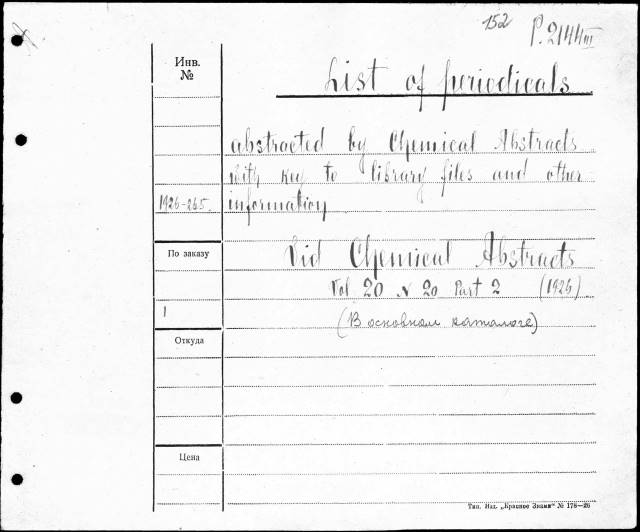 152 P.2144III
Инв.
№
List of periodicals
abstracted by Chemical Abstracts
with key to library files and other
1926-265. information
По заказу
Vid Chemical Abstracts
Vol 20 N 20 Part 2 (1926)
1
(В основном каталоге)
Откуда
Цена
Тип. Изд. „Красное Знамя“ № 178—26